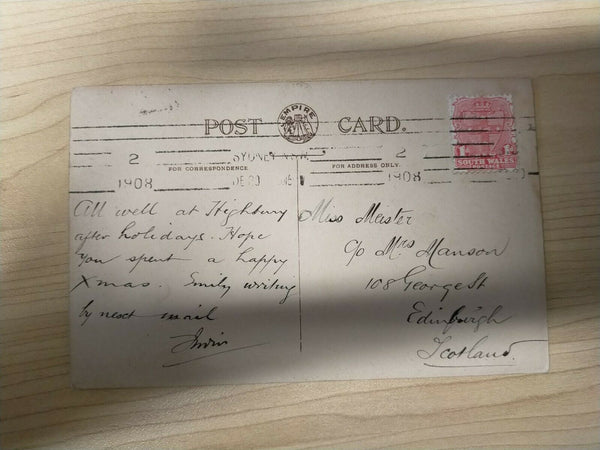 POST CARD.
EMPIRE
2 SYDNEY 2
FOR CORRESPONDENCE FOR ADDRESS ONLY.
1908 DE 29 1908
1d
SOUTH WALES
POSTAGE
All well at Highbury
after holidays. Hope
you spent a happy
Xmas. Emily writing
by next mail
Irwin
Miss Meister
c/o Mrs Manson
108 George St
Edinburgh
Scotland.